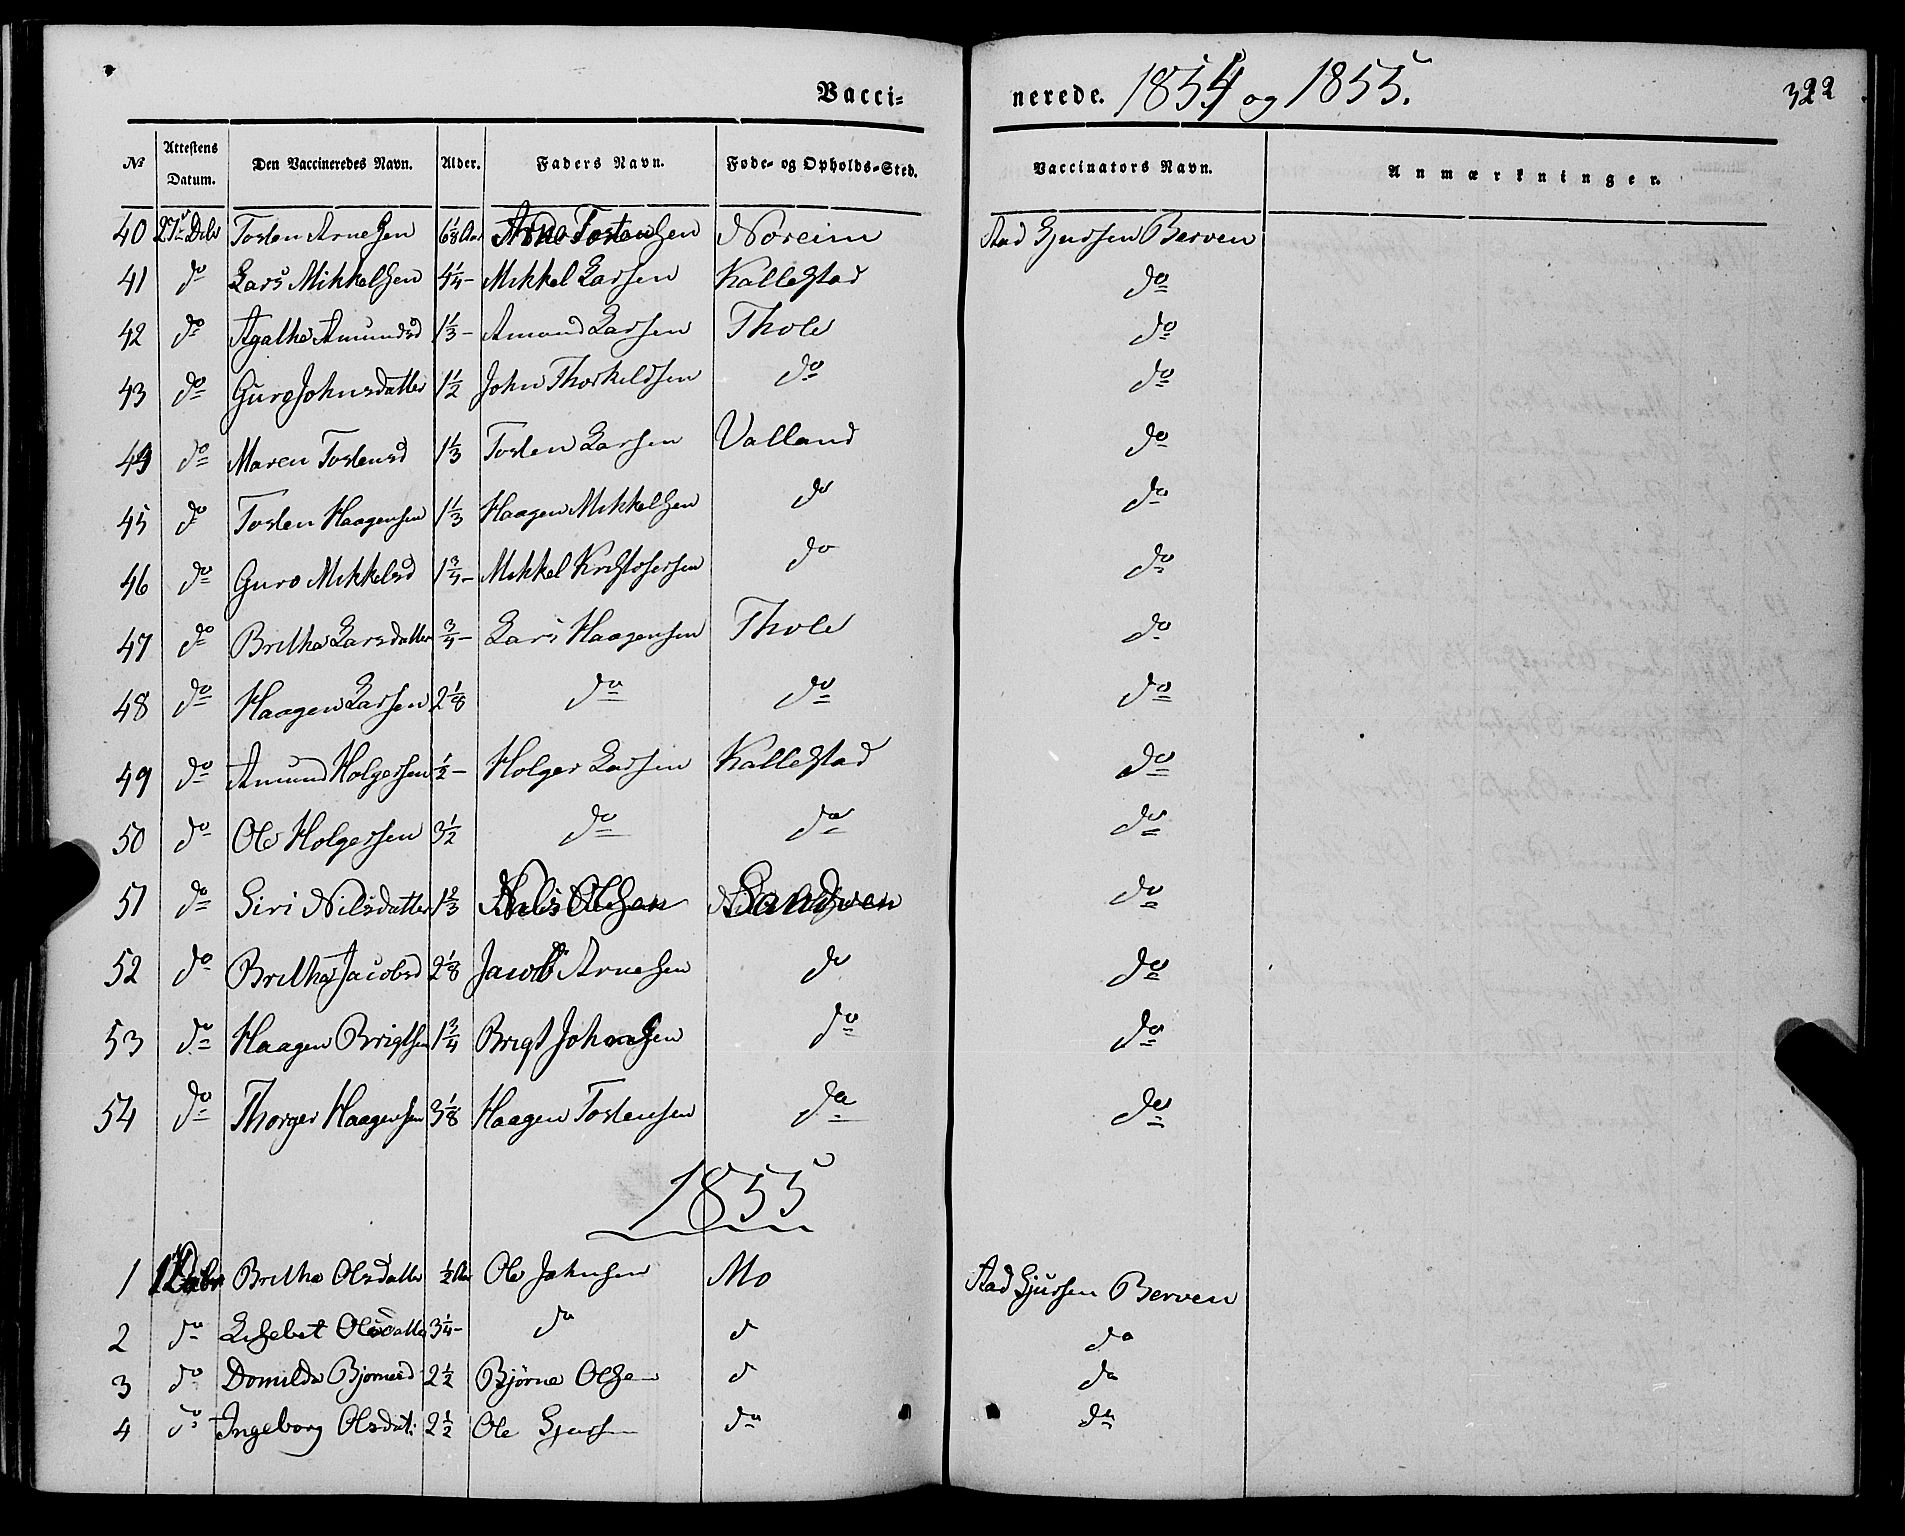 Vacci- nerede. 1854 og 1855. 322
No Attestens Datum. Den Vaccineredes Navn. Alder. Faders Navn. Føde- og Opholds-Sted. Vaccinators Navn. Anmærkninger.
40 27 Decbr Tosten Arnesen 6 1/8 Aar Arne Tostensen Noreim Aad Gjursen Berven
41 do Lars Mikkelsen 4 1/4 - Mikkel Larsen Kallestad do
42 do Agatha Amundsd 1 1/3 - Amund Larsen Thole do
43 do Guro Johnsdatter 1 1/2 John Thorkeldsen do do
44 do Maren Tostensd 1 1/3 Tosten Larsen Valland do
45 do Tosten Haagensen 1 1/3 Haagen Mikkelsen do do
46 do Guro Mikkelsd 1 3/4 - Mikkel Kristofersen do do
47 do Britha Larsdatter 3/4 - Lars Haagensen Thole do
48 do Haagen Larsen 2 1/8 do do do
49 do Amund Holgersen 1/2 - Holger Larsen Kallestad do
50 do Ole Holgersen 3 1/2 do do do
51 do Siri Nilsdatter 1 2/3 Nils Olsen Sandven do
52 do Britha Jacobsd 2 1/8 Jacob Arnesen do do
53 do Haagen Brigtsen 1 3/4 Brigt Johnsen do do
54 do Thorger Haagensen 3 1/8 Haagen Tostensen do do
1855
1 Britha Olsdatter 1/2 Aar Ole Johnsen Mo Aad Gjursen Berven
2 do Lisebet Olsdatter 3 1/4 - do d do
3 do Domilda Bjørnesd 2 1/2 Bjørne Olsen d do
4 do Ingeborg Olsdat: 2 1/2 Ole Gjursen do do